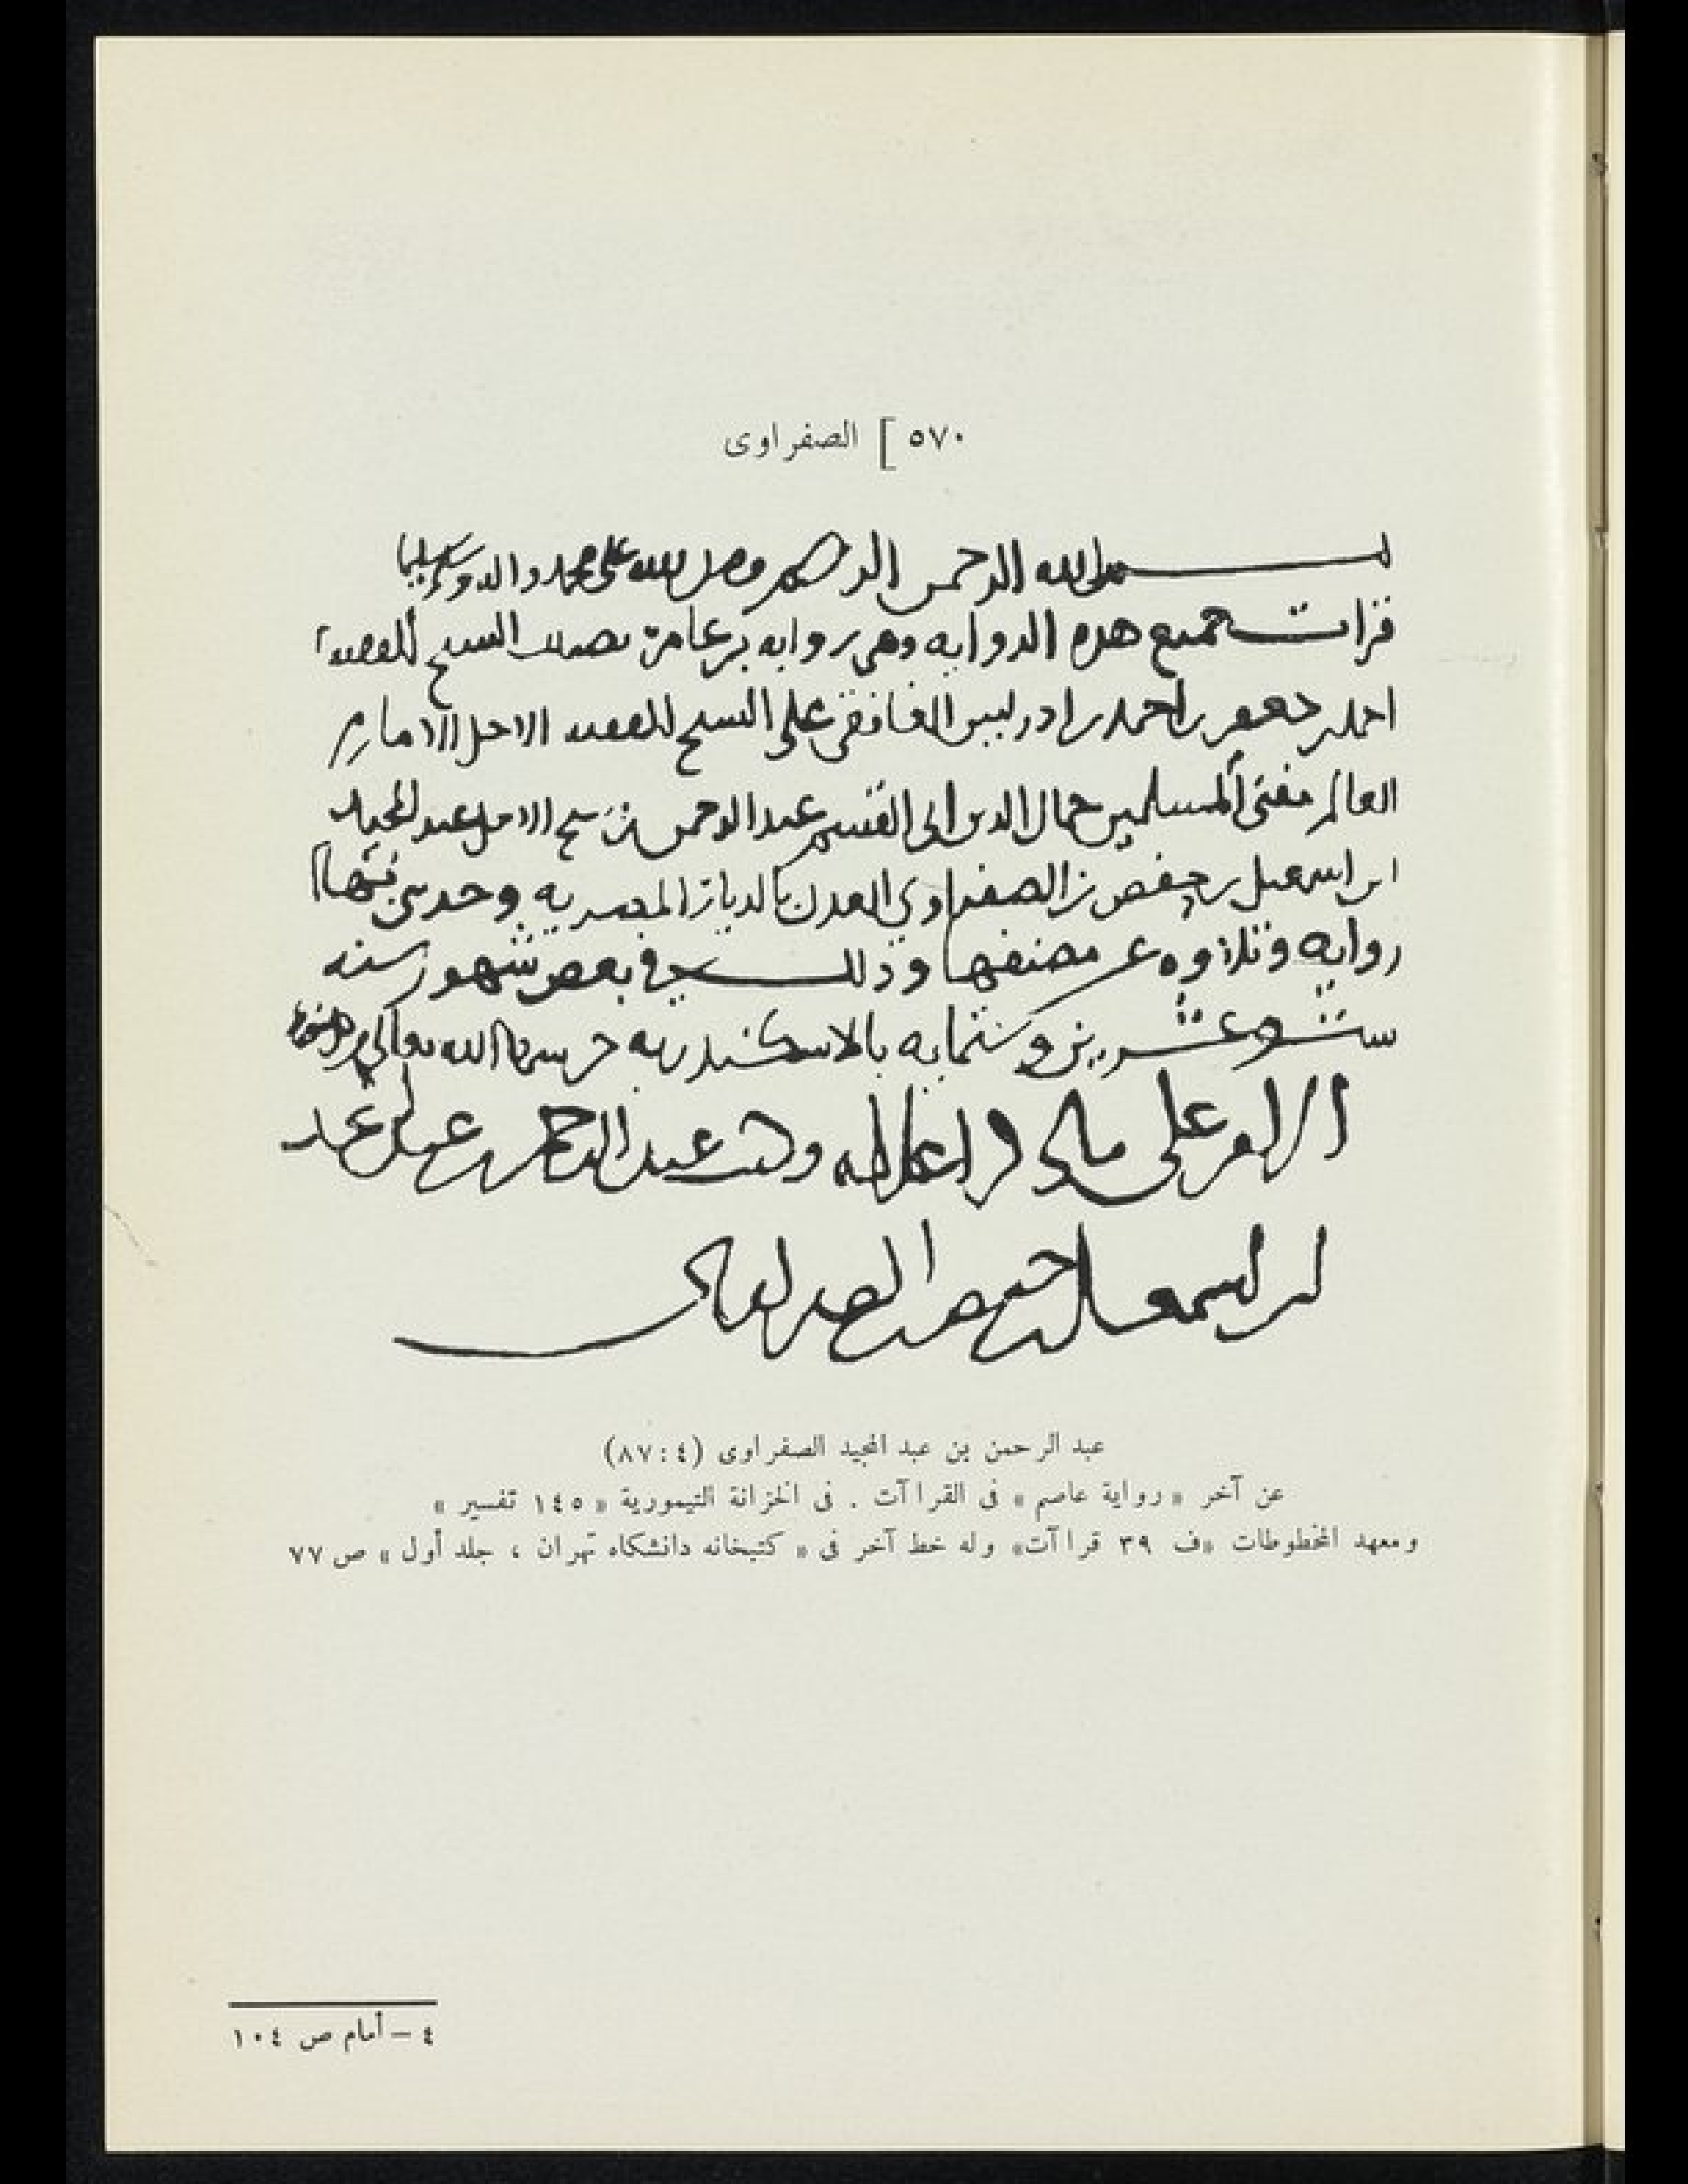 ٥٧٠ ] الصفراوى
بسم الله الرحمن الرحيم وصلى الله على محمد واله وسلم تسليما
قرات جميع هذه الروايه وهي روايه عاصم الشيخ الفقيه
احمد بن جعفر بن احمد بن ادريس الغافقي على الشيخ الفقيه الاجل الامام
العالم مفتي المسلمين جمال الدين ابي القسم عبد الرحمن بن الشيخ الاجل عبد المجيد
ابن اسمعيل بن حفص الصفراوي بالديار المصريه وحدثني بها
روايه وتلاوه عن مصنفها وذلك في بعض شهور سنه
ست وعشرين وستمايه بالاسكندريه حرسها الله تعالى
الامر على ما ذكر اعلاه وكتب عبد الرحمن بن عبد
ابن اسمعيل بن حفص الصفراوي
عبد الرحمن بن عبد المجيد الصفراوى (٤ : ٨٧)
عن آخر « رواية عاصم » فى القراآت . فى الخزانة التيمورية « ١٤٥ تفسير »
ومعهد المخطوطات «ف ٣٩ قراآت» وله خط آخر فى « كتبخانه دانشكاه تهران ، جلد أول » ص ٧٧
٤ – أمام ص ١٠٤